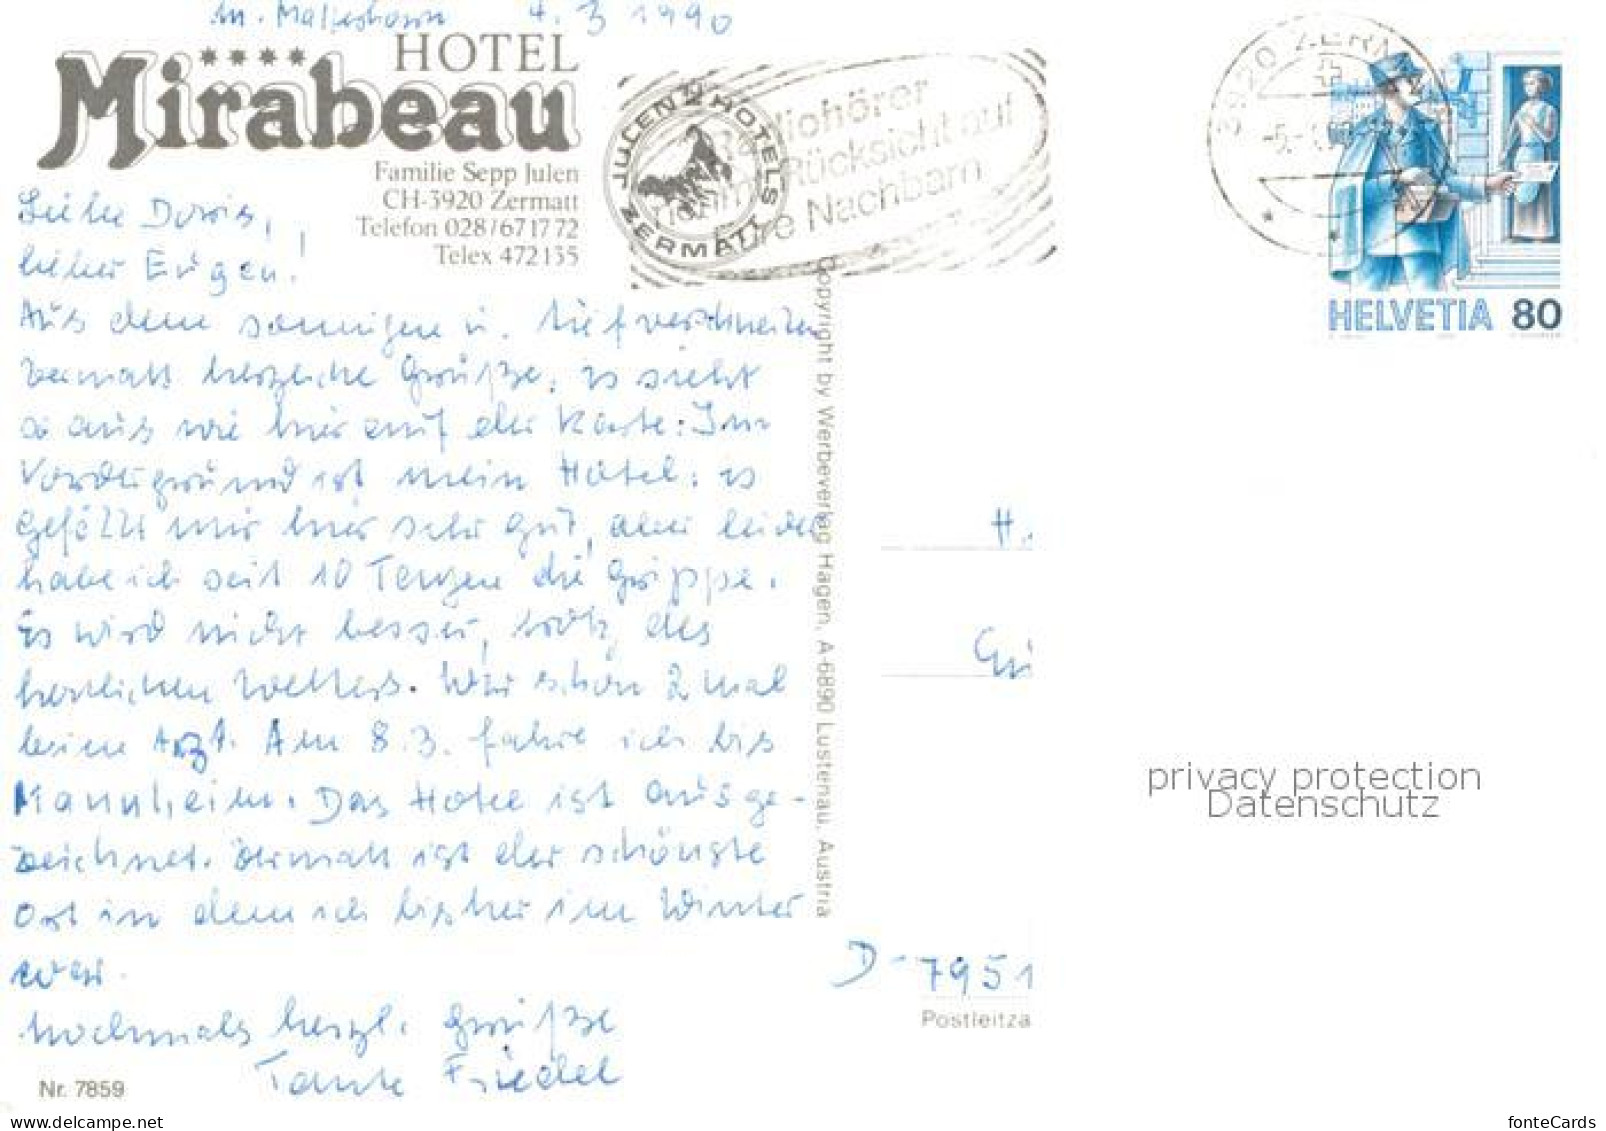 m. Matterhorn 4. 3 1990
HOTEL
Mirabeau
Familie Sepp Julen
CH-3920 Zermatt
Telefon 028/67 17 72
Telex 472135
JULEN HOTELS ZERMATT
Radiohörer
Rücksicht auf
Nachbarn
3920 ZERM
-5.-
HELVETIA 80
Liebe Doris,
lieber Eugen!
Aus dem sonnigen u. tiefverschneiten
Zermatt herzliche Grüße. Es sieht
so aus wie hier auf der Karte: Im
Vordergrund ist mein Hotel. Es
gefällt mir hier sehr gut, aber leider
habe ich seit 10 Tagen die Grippe.
Es wird nicht besser, trotz des
herrlichen Wetters. War schon 2 mal
beim Arzt. Am 8.3. fahre ich bis
Mannheim. Das Hotel ist ausge-
zeichnet. Zermatt ist der schönste
Ort in dem ich bisher im Winter
war.
Nochmals herzl. Grüße
Tante Friedel
Nr. 7859
Copyright by Werbeverlag Hagen, A-6890 Lustenau, Austria
H.
D-7951
Postleitza
privacy protection
Datenschutz
fonteCards
www.delcampe.net